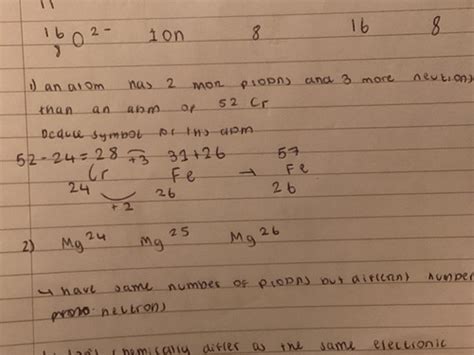 16 8 O 2- ion 8 16 8
1) an atom has 2 more protons and 3 more neutrons
than an atom of 52 Cr
Deduce symbol of this atom
52 - 24 = 28 +3 31+26 57
Cr Fe → Fe
24 +2 26 26
2) Mg 24 Mg 25 Mg 26
↳ have same number of protons but different number
neutrons
chemically differ as the same electronic